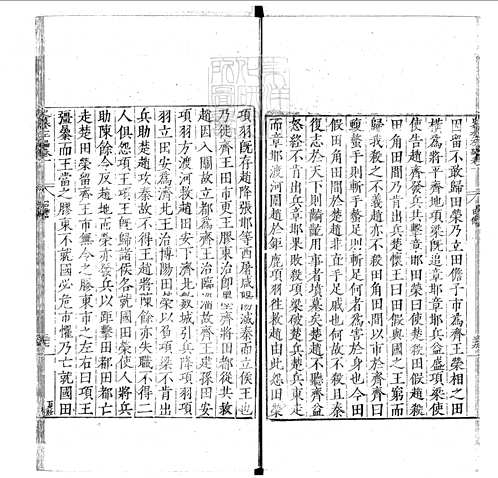 田留不敢歸田榮乃立田儋子市為齊王榮相之田
橫為將平齊地項梁既追章邯章邯兵益盛項梁使
使告趙齊發兵共擊章邯田榮曰使楚殺田假趙殺
田角田閒乃肯出兵楚懷王曰田假與國之王窮而
歸我殺之不義趙亦不殺田角田閒以市於齊齊曰
蝮螫手則斬手螫足則斬足何者為害於身也今田
假田角田閒於楚趙非直手足戚也何故不殺且秦
復志於天下則齮齕用事者墳墓矣楚趙不聽齊益
怒終不肯出兵章邯果敗殺項梁破楚兵楚兵東走
而章邯渡河圍趙於鉅鹿項羽往救趙由此怨田榮
項羽既存趙降章邯等西屠咸陽滅秦而立侯王也
乃徙齊王田市更王膠東治即墨齊將田都從共救
趙因入關故立都為齊王治臨淄故齊王建孫田安
項羽方渡河救趙田安下濟北數城引兵降項羽項
羽立田安為濟北王治博陽田榮以負項梁不肯出
兵助楚趙攻秦故不得王趙將陳餘亦失職不得二
人俱怨項王項王既歸諸侯各就國田榮使人將兵
助陳餘令反趙地榮亦發兵以距擊田都田都亡
走楚田榮留齊王市無令之膠東市之左右曰項王
彊暴而王當之膠東不就國必危市懼乃亡就國田